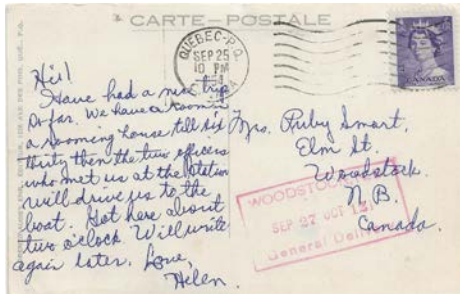 CARTE-POSTALE
QUEBEC-P.Q.
SEP 25
10 PM
CANADA
Hi!
Have had a nice trip
so far. We have a room in
a rooming house till six
thirty then the two officers
who met us at the station
will drive us to the
boat. Got here about
two o'clock. Will write
again later. Love,
Helen.
Mrs. Ruby Smart,
Elm St.
Woodstock
N.B.
Canada.
WOODSTOCK
SEP 27 OCT 12
General Delivery